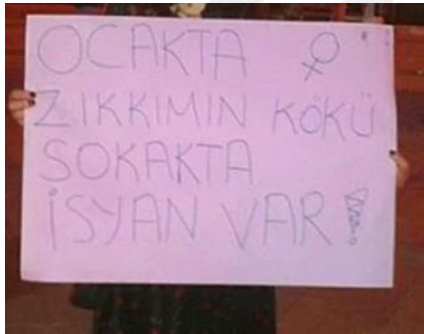 OCAKTA ♀
ZIKKIMIN KÖKÜ
SOKAKTA
İSYAN VAR!